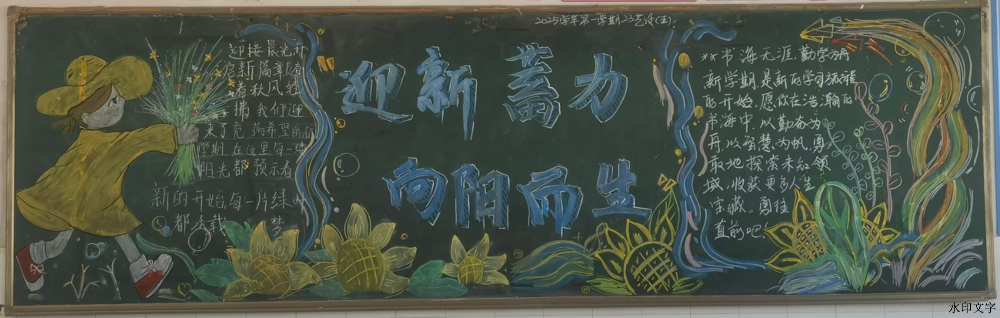 2025学年第一学期23艺设(五)
迎接晨光开
启新篇章随
着秋风轻
拂我们迎
来了充满希望的新
学期在这里每一缕
阳光都预示着
新的开始每一片绿叶
都承载 梦
迎新 蓄力
向阳而生
书海无涯,勤学为舟
新学期是新的学习旅程
的开始,愿你在浩瀚的
书海中,以勤奋为
舟以智慧为帆,勇
敢地探索未知领
域,收获更多人生
宝藏。勇往
直前吧。
水印文字